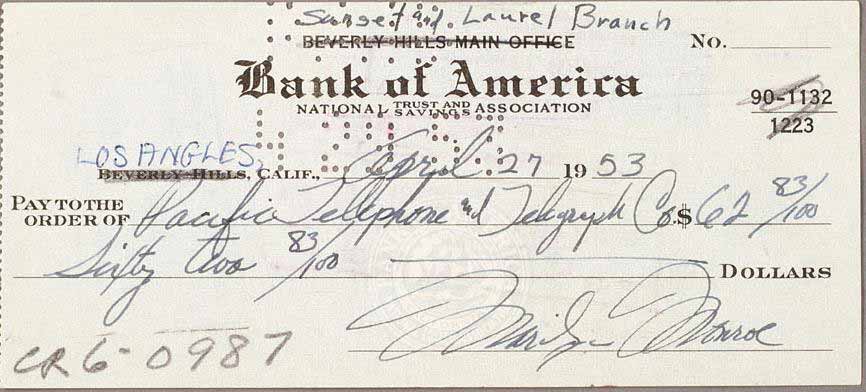 Sunset and Laurel Branch
BEVERLY HILLS MAIN OFFICE No.
Bank of America
NATIONAL TRUST AND SAVINGS ASSOCIATION
90-1132
1223
LOS ANGLES,
BEVERLY HILLS, CALIF., April 27 1953
PAY TO THE ORDER OF Pacific Telephone and Telegraph Co. $62 83/100
Sixty two 83/100 DOLLARS
Marilyn Monroe
CR6-0987